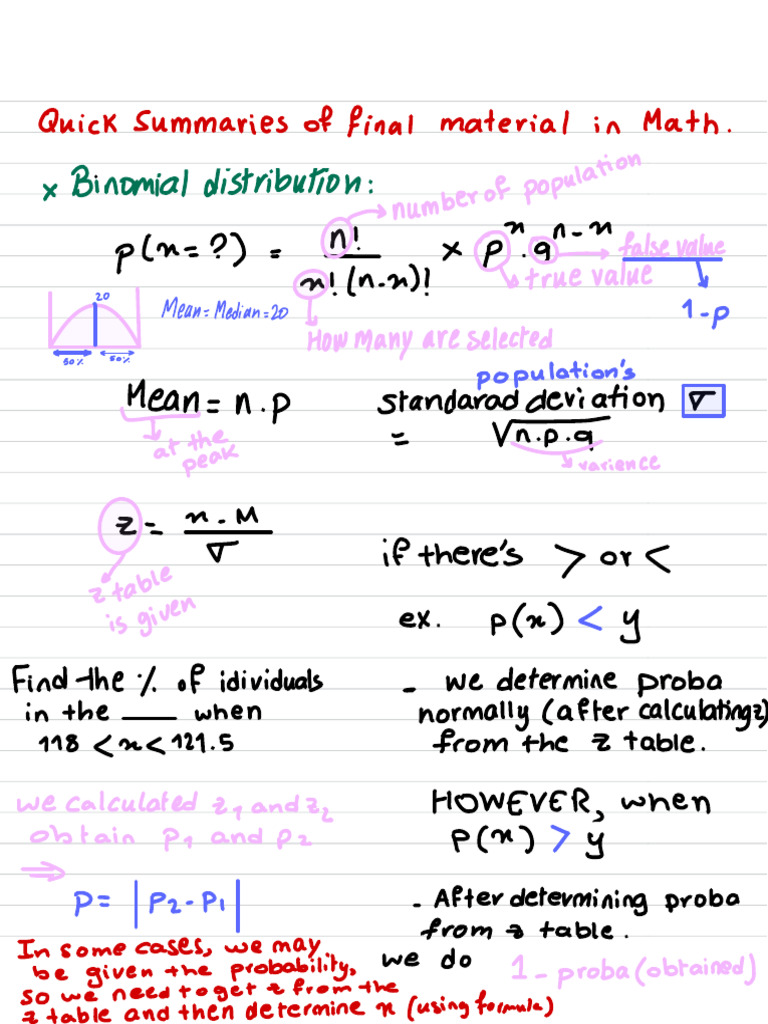 Quick Summaries of final material in Math.
× Binomial distribution:
number of population
p(x=?) = n! / x!(n-x)! × p^x . q^n-x
false value
true value
1-p
20
Mean = Median = 20
50% 50%
How many are selected
Mean = n.p
at the
peak
population's
standarad deviation σ
= √n.p.q
varience
z = x - M / σ
z table
is given
if there's > or <
ex. p(x) < y
Find the % of idividuals
in the ____ when
118 < x < 121.5
- we determine proba
normally (after calculating z)
from the z table.
we calculated z1 and z2
obtain p1 and p2
⇒
P = |P2 - P1|
HOWEVER, when
p(x) > y
- After determining proba
from z table.
we do 1 - proba (obtained)
In some cases, we may
be given the probability,
so we need to get z from the
z table and then determine x (using formula)